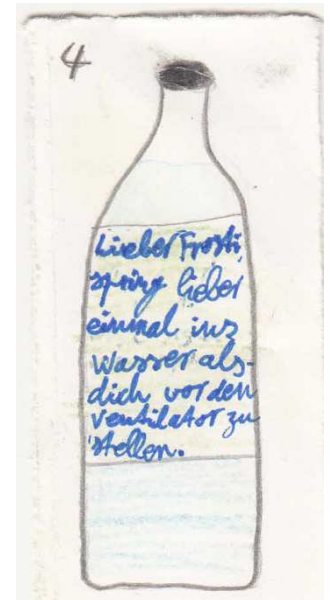 4
Lieber Frosti,
spring lieber
einmal ins
Wasser als-
dich vor den
Ventilator zu
stellen.